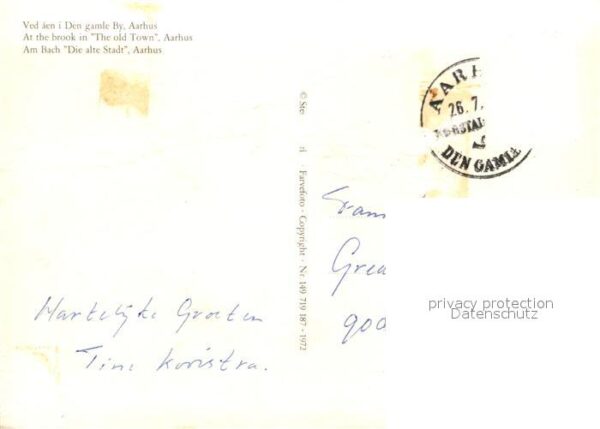 Ved åen i Den gamle By, Aarhus
At the brook in "The old Town", Aarhus
Am Bach "Die alte Stadt", Aarhus
© Ste ri · Farvefoto - Copyright - Nr. 149 719 187 - 1972
AARH
26.7.
DEN GAMLE
Fam
Grea
900
Hartelijke Groeten
Tine
privacy protection
Datenschutz